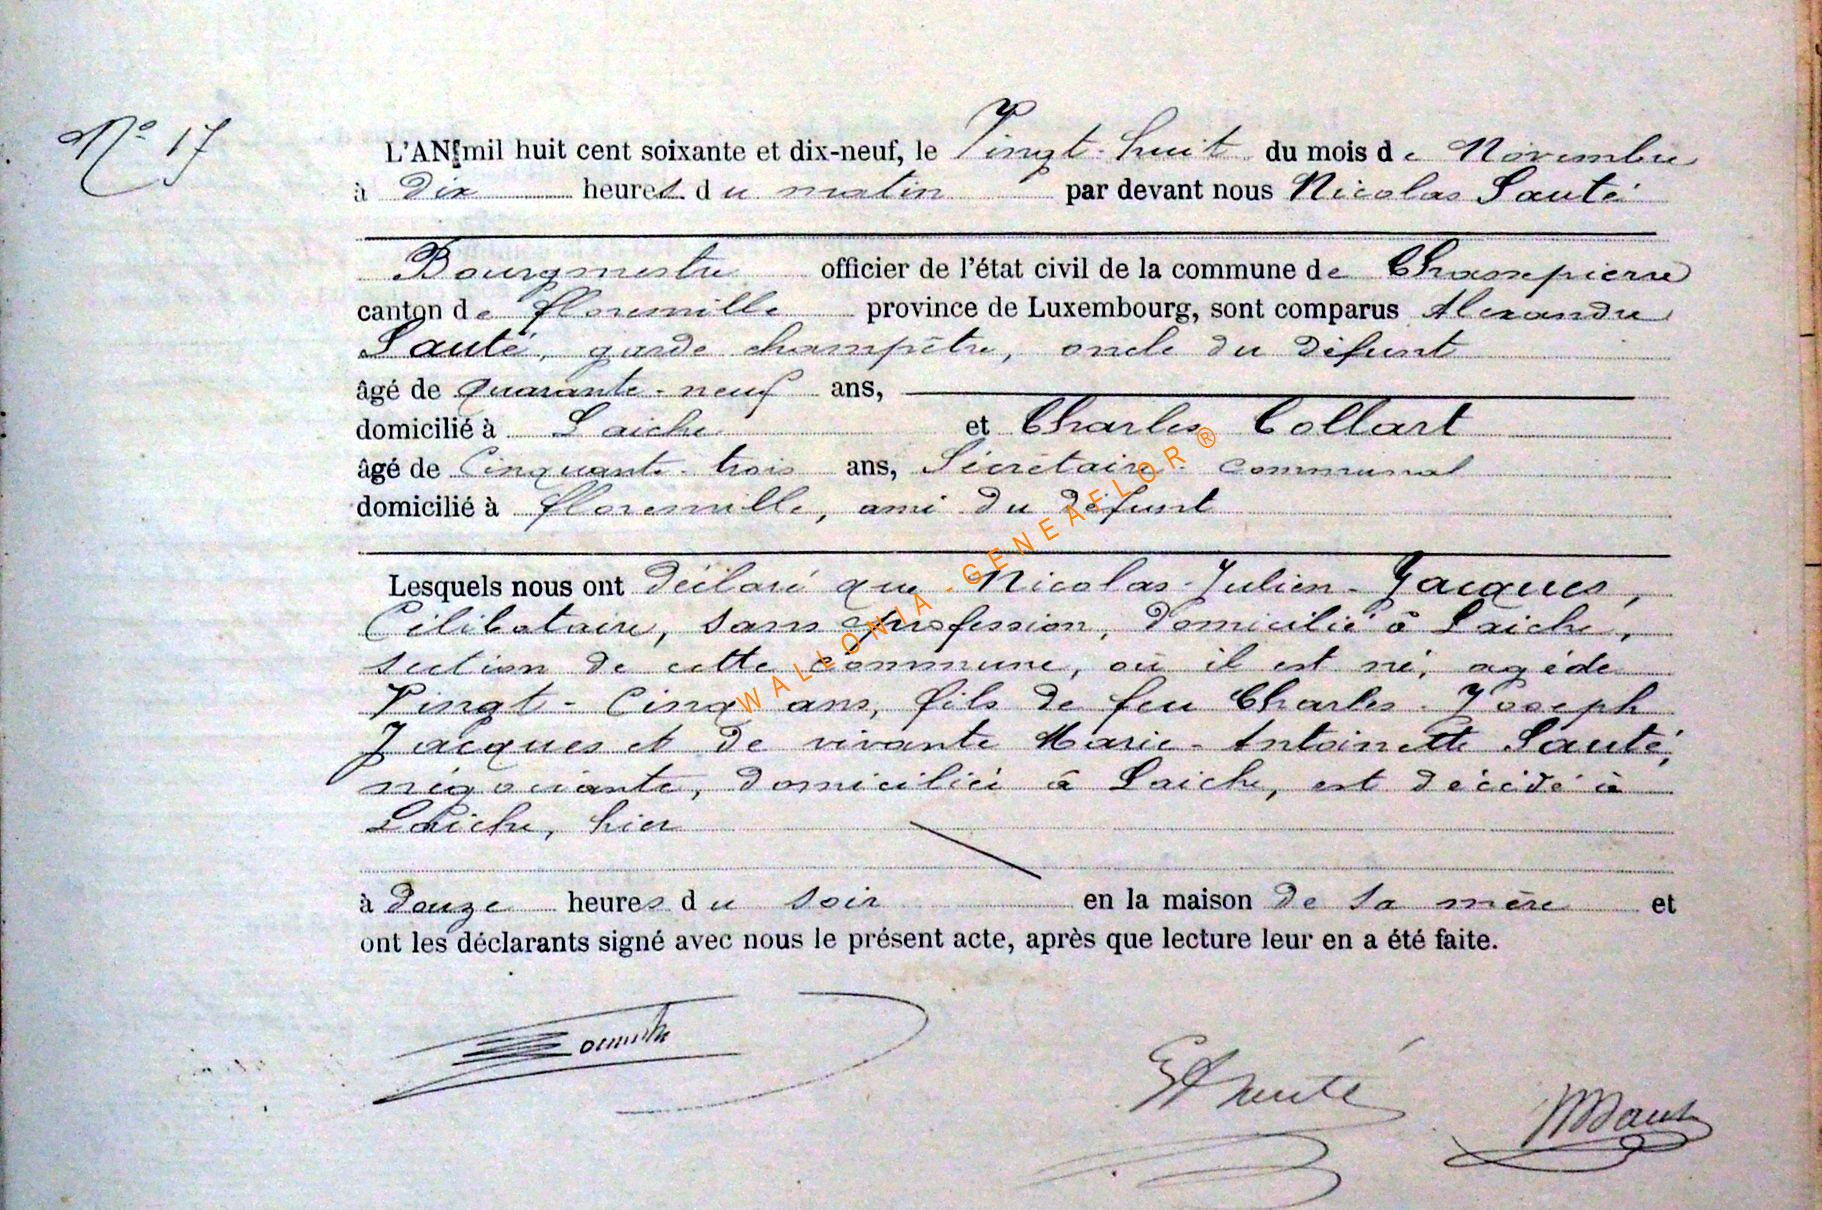 N° 17
L'AN mil huit cent soixante et dix-neuf, le Vingt-huit du mois de Novembre
à Dix heures du matin par devant nous Nicolas Sauté
Bourgmestre officier de l'état civil de la commune de Chassepierre
canton de florenville province de Luxembourg, sont comparus Alexandre
Sauté, garde champêtre, oncle du défunt
âgé de quarante-neuf ans,
domicilié à Laiche et Charles Collart
âgé de Cinquante-trois ans, Sécrétaire-communal
domicilié à florenville, ami du défunt
Lesquels nous ont déclaré que Nicolas-Julien-Jacques,
Célibataire, sans profession, Domicilié à Laiche,
section de cette commune, où il est né, agéde
Vingt-Cinq ans, fils de feu Charles-Joseph
Jacques et de vivante Marie-Antoinette Sauté,
négociante, domiciliéé à Laiche, est décédé à
Laiche, hier
à douze heures du soir en la maison de sa mère et
ont les déclarants signé avec nous le présent acte, après que lecture leur en a été faite.
Sauté
WALLONIA-GENEAFLOR®